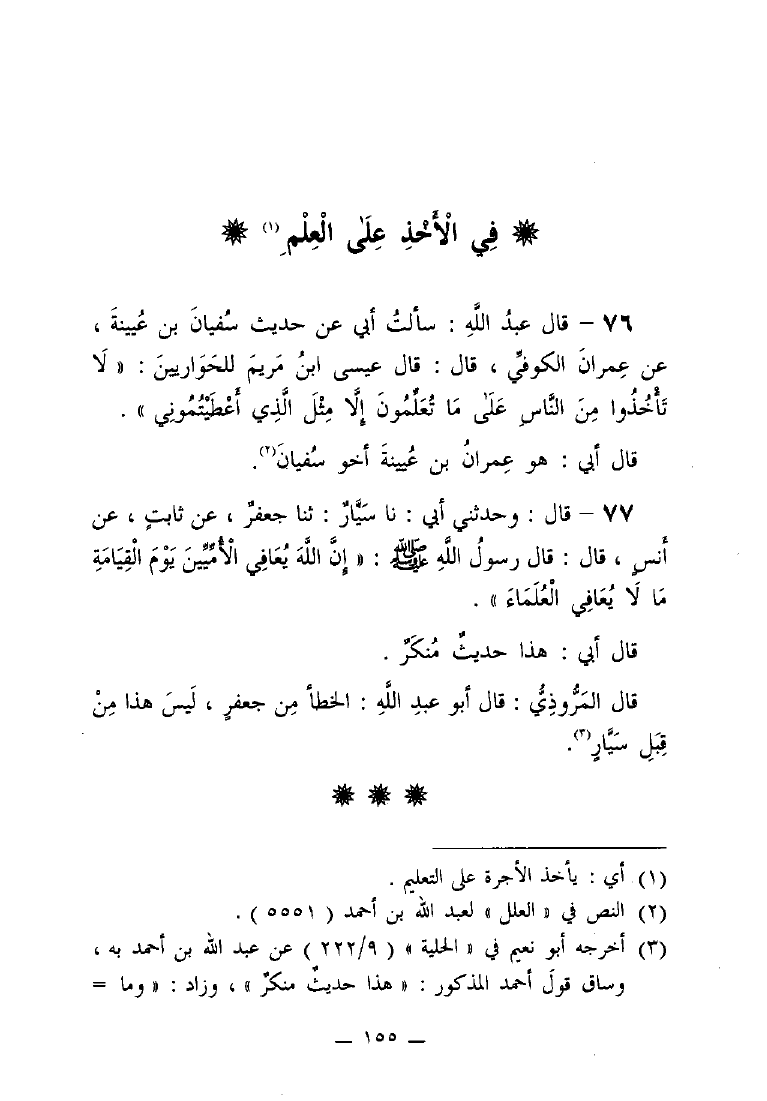 ❋ فِي الْأَخْذِ عِلَى الْعِلْمِ (١) ❋
٧٦ – قال عبدُ اللَّهِ : سألتُ أبي عن حديث سُفيانَ بن عُيينةَ ،
عن عِمرانَ الكوفيِّ ، قال : قال عيسى ابنُ مَريمَ للحَوَاريينَ : « لَا
تَأْخُذُوا مِنَ النَّاسِ عَلَى مَا تُعَلِّمُونَ إِلَّا مِثْلَ الَّذِي أَعْطَيْتُمُونِي » .
قال أبي : هو عِمرانُ بن عُيينةَ أخو سُفيانَ(٢).
٧٧ – قال : وحدثني أبي : نا سَيَّارٌ : ثنا جعفرٌ ، عن ثابتٍ ، عن
أَنسٍ ، قال : قال رسولُ اللَّهِ ﷺ : « إِنَّ اللَّهَ يُعَافِي الْأُمِّيِّينَ يَوْمَ القِيَامَةِ
مَا لَا يُعَافِي الْعُلَمَاءَ » .
قال أبي : هذا حديثٌ مُنكَرٌ .
قال المَرُّوذِيُّ : قال أبو عبدِ اللَّهِ : الخطأ مِن جعفرٍ ، لَيسَ هذا مِنْ
قِبَلِ سَيَّارٍ(٣).
❋ ❋ ❋
(١) أي : يأخذ الأجرة على التعليم .
(٢) النص في « العلل » لعبد الله بن أحمد ( ٥٥٥١ ) .
(٣) أخرجه أبو نعيم في « الحلية » ( ٢٢٢/٩ ) عن عبد الله بن أحمد به ،
وساق قولَ أحمد المذكور : « هذا حديثٌ منكرٌ » ، وزاد : « وما =
– ١٥٥ –